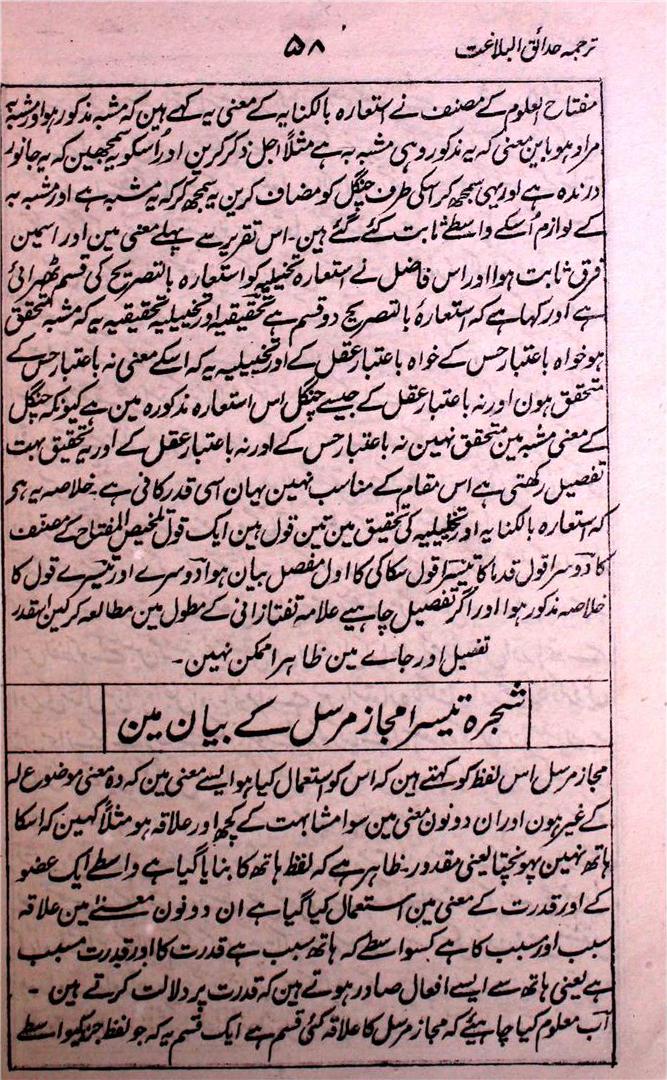 ترجمہ حدائق البلاغت
۵۸
مفتاح العلوم کے مصنف نے استعارہ بالکنایہ کے معنی یہ کہے ہین کہ مشبہ مذکور ہو اور مشبہ بہ
مراد ہو باین معنی کہ یہ مذکور وہی مشبہ بہ ہے مثلاً اجل ذکر کرین اور اُسکو یہ سمجھین کہ یہ جانور
درندہ ہے اور یہی سمجھ کر اسکی طرف چنگل کو مضاف کرین یہ سمجھ کر کہ یہ مشبہ ہے اور مشبہ بہ
کے لوازم اُسکے واسطے ثابت کئے گئے ہین۔ اس تقریر سے پہلے معنی مین اور اسمین
فرق ثابت ہوا اور اس فاضل نے استعارہ تخییلیہ کو استعارہ بالتصریح کی قسم ٹھہرائی
ہے اور کہا ہے کہ استعارۂ بالتصریح دو قسم ہے تحقیقیہ اور تخییلیہ تحقیقیہ یہ کہ مشبہ متحقق
ہو خواہ باعتبار حس کے خواہ باعتبار عقل کے اور تخییلیہ یہ کہ اسکے معنی نہ باعتبار حس کے
متحقق ہون اور نہ باعتبار عقل کے جیسے چنگل اس استعارہ مذکورہ مین ہے کیونکہ چنگل
کے معنی مشبہ مین متحقق نہین نہ باعتبار حس کے اور نہ باعتبار عقل کے اور یہ تحقیق بہت
تفصیل رکھتی ہے اس مقام کے مناسب نہین یہان اسی قدر کافی ہے۔ خلاصہ یہ ہے
کہ استعارہ بالکنایہ اور تخییلیہ کی تحقیق مین تین قول ہین ایک قول تلخیص المفتاح کے مصنف
کا دوسرا قول قدما کا تیسرا قول سکاکی کا اول مفصل بیان ہوا دوسرے اور تیسرے قول کا
خلاصہ مذکور ہوا اور اگر تفصیل چاہیے علامہ تفتازانی کے مطول مین مطالعہ کر لین اسقدر
تفصیل اور جاے مین ظاہرا ممکن نہین۔
شجرہ تیسرا مجاز مرسل کے بیان مین
مجاز مرسل اس لفظ کو کہتے ہین کہ اس کو استعمال کیا ہو ایسے معنی مین کہ وہ معنی موضوع لہ
کے غیر ہون اور ان دونون معنی مین سوا مشابہت کے کچھ اور علاقہ ہو مثلاً کہین کہ اسکا
ہاتھ نہین پہونچتا یعنی مقدور۔ ظاہر ہے کہ لفظ ہاتھ کا بنایا گیا ہے واسطے ایک عضو
کے اور قدرت کے معنی مین استعمال کیا گیا ہے ان دونون معنے مین علاقہ
سبب اور مسبب کا ہے کسواسطے کہ ہاتھ سبب ہے قدرت کا اور قدرت مسبب
ہے یعنی ہاتھ سے ایسے افعال صادر ہوتے ہین کہ قدرت پر دلالت کرتے ہین ۔
اب معلوم کیا چاہیئے کہ مجاز مرسل کا علاقہ کئی قسم ہے ایک قسم یہ کہ جو لفظ جز کیواسطے